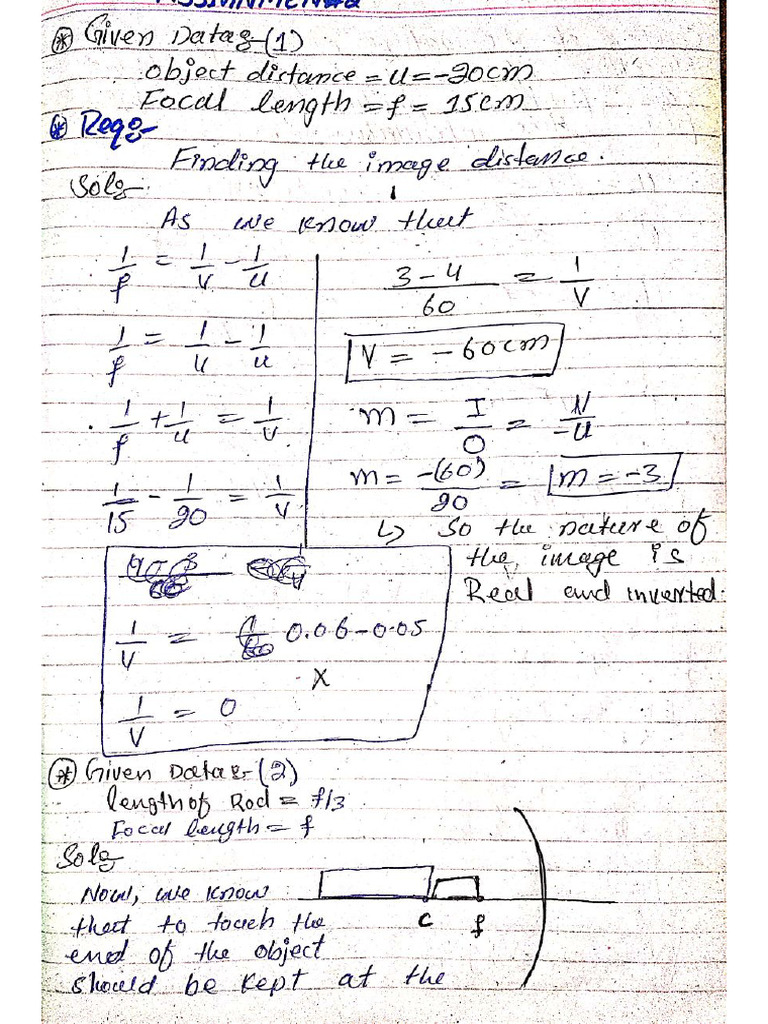 ASSIGNMENT#2
* Given Data:-(1)
object distance = u = -20cm
Focal length = f = 15cm
* Req:-
Finding the image distance.
Sol:-
As we know that
1/f = 1/v - 1/u
1/f = 1/u - 1/u
1/f + 1/u = 1/v
1/15 - 1/20 = 1/v
1/v = 0.06-0.05
X
1/v = 0
3-4/60 = 1/v
V = -60cm
m = I/O = V/-u
m = -(60)/20 = m = -3
↳ So the nature of
the image is
Real and inverted.
* Given Data:-(2)
length of Rod = f/3
Focal length = f
Sol:-
Now, we know
that to touch the
end of the object
should be kept at the
C f